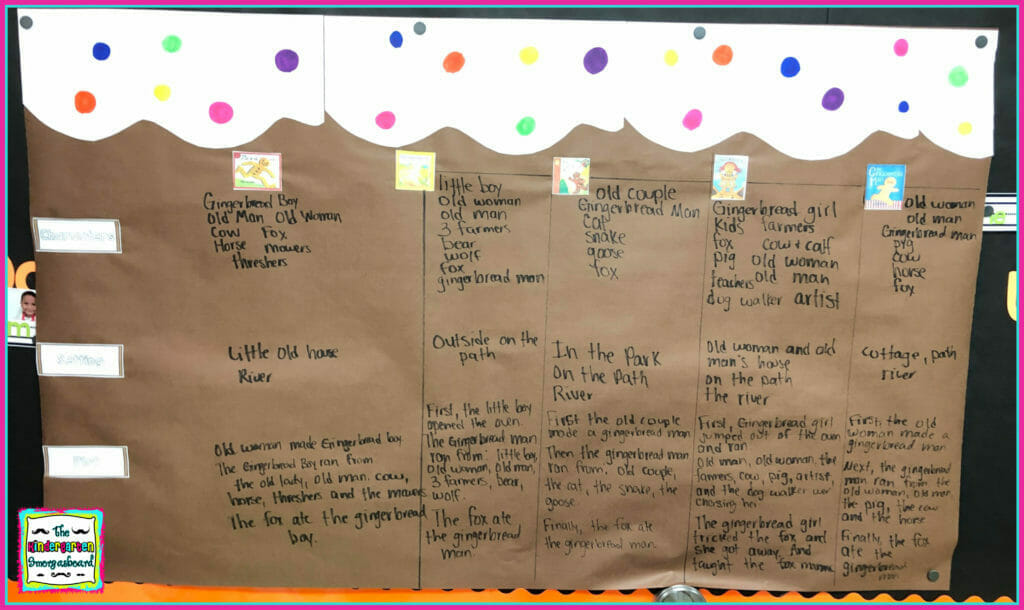 Characters
Gingerbread Boy
Old Man Old Woman
Cow Fox
Horse mowers
threshers
little boy
old woman
old man
3 farmers
bear
wolf
fox
gingerbread man
old couple
Gingerbread Man
Cat
snake
goose
fox
Gingerbread girl
Kids farmers
fox cow + calf
pig old woman
teachers old man
dog walker artist
old woman
old man
Gingerbread man
pig
cow
horse
fox
Setting
Little old house
River
Outside on the
path
In the Park
On the Path
River
Old woman and old
man's house
on the path
the river
cottage, path
river
Plot
Old woman made Gingerbread boy.
The Gingerbread Boy ran from
the old lady, old man, cow,
horse, threshers and the mowers
The fox ate the gingerbread
boy.
First, the little boy
opened the oven.
The Gingerbread man
ran from: little boy,
old woman, old man,
3 farmers, bear,
wolf.
The fox ate
the gingerbread
man.
First the old couple
made a gingerbread man
Then the gingerbread man
ran from: old couple,
the cat, the snake, the
goose.
Finally, the fox ate
the gingerbread man.
First, Gingerbread girl
jumped out of the oven
and ran.
Old man, old woman, the
farmers, cow, pig, artist,
and the dog walker wer
chasing her
The gingerbread girl
tricked the fox and
she got away. And
taught the fox manners
First, the old
woman made a
gingerbread man
Next, the gingerbread
man ran from the
old woman, old man,
the pig, the cow
and the horse
Finally the fox
ate the
gingerbread
man
The
Kindergarten
Smorgasboard